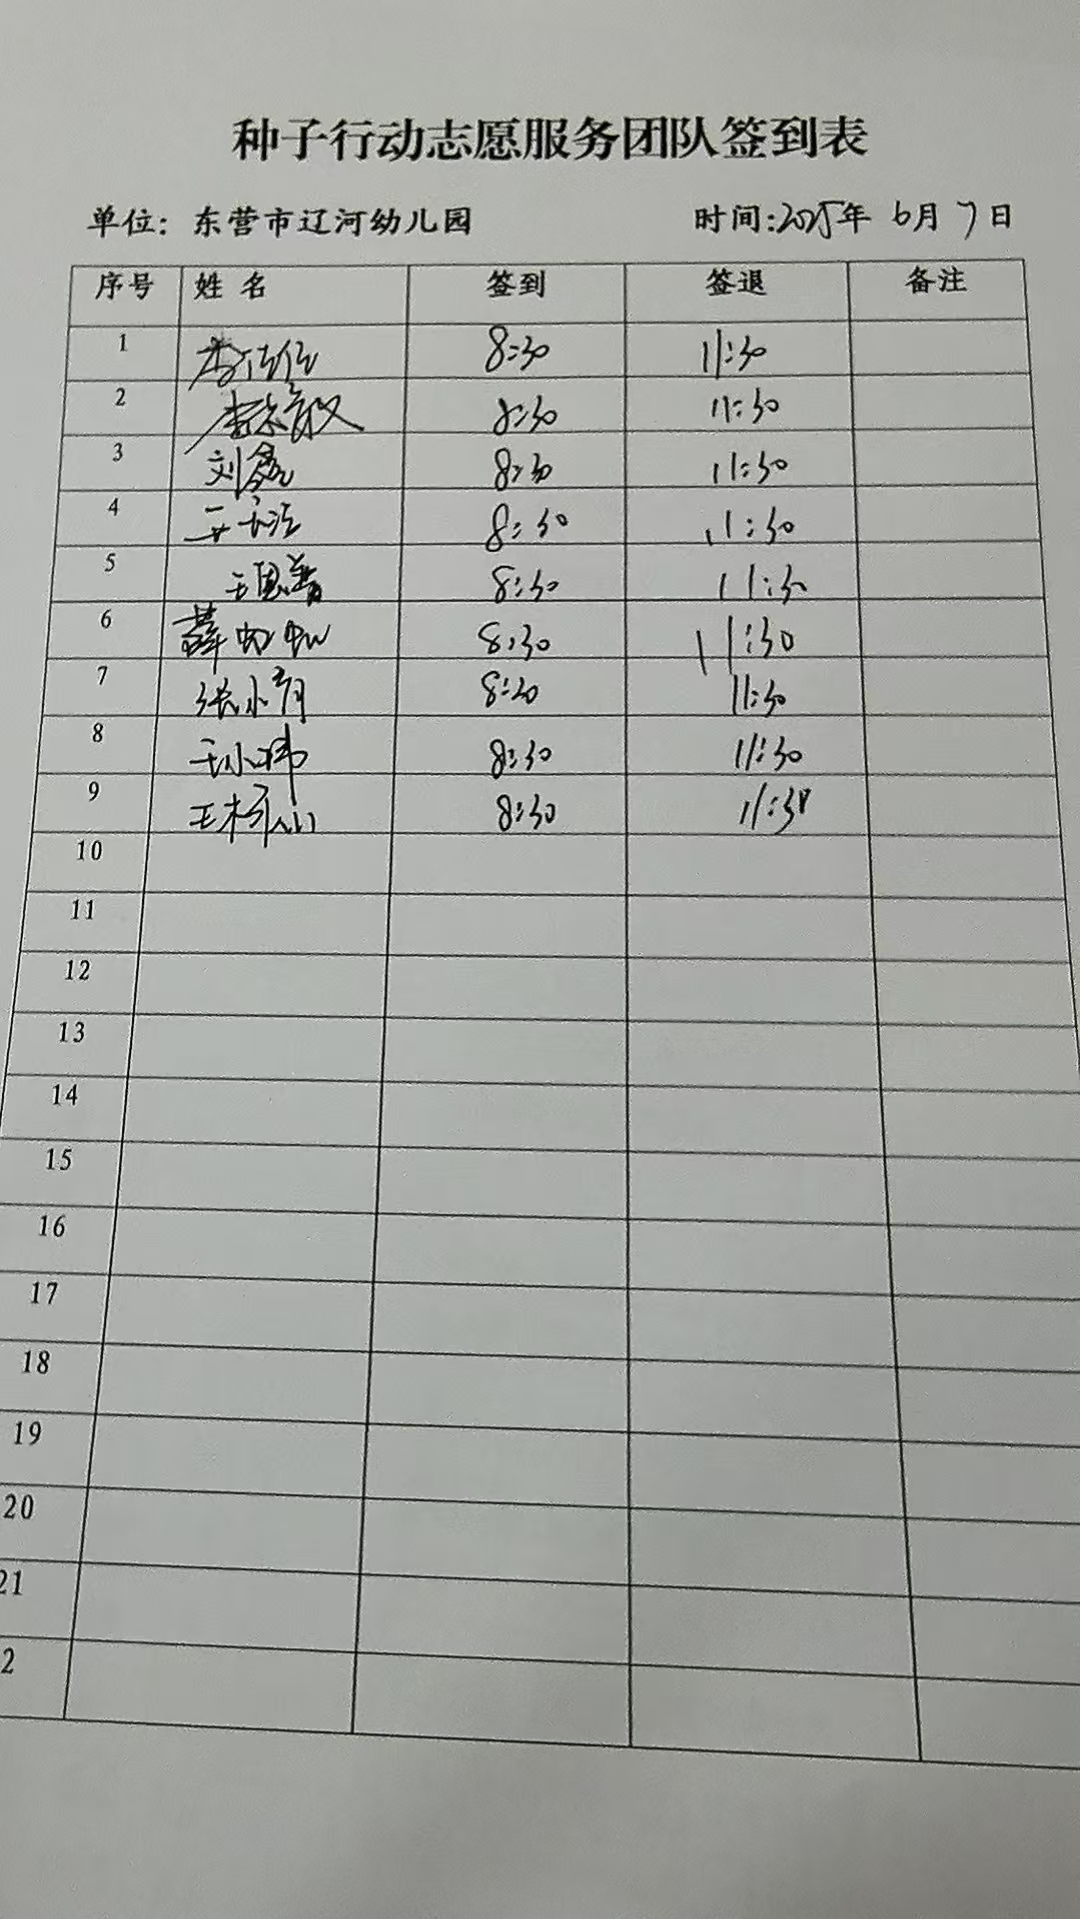 种子行动志愿服务团队签到表
单位: 东营市辽河幼儿园 时间:2025年 6月 7日
序号 姓名 签到 签退 备注
1 8:30 11:30
2 8:30 11:30
3 刘鑫 8:30 11:30
4 8:30 11:30
5 王恩普 8:30 11:30
6 薛 8:30 11:30
7 张小青 8:30 11:30
8 王小玮 8:30 11:30
9 8:30 11:30
10
11
12
13
14
15
16
17
18
19
20
21
2